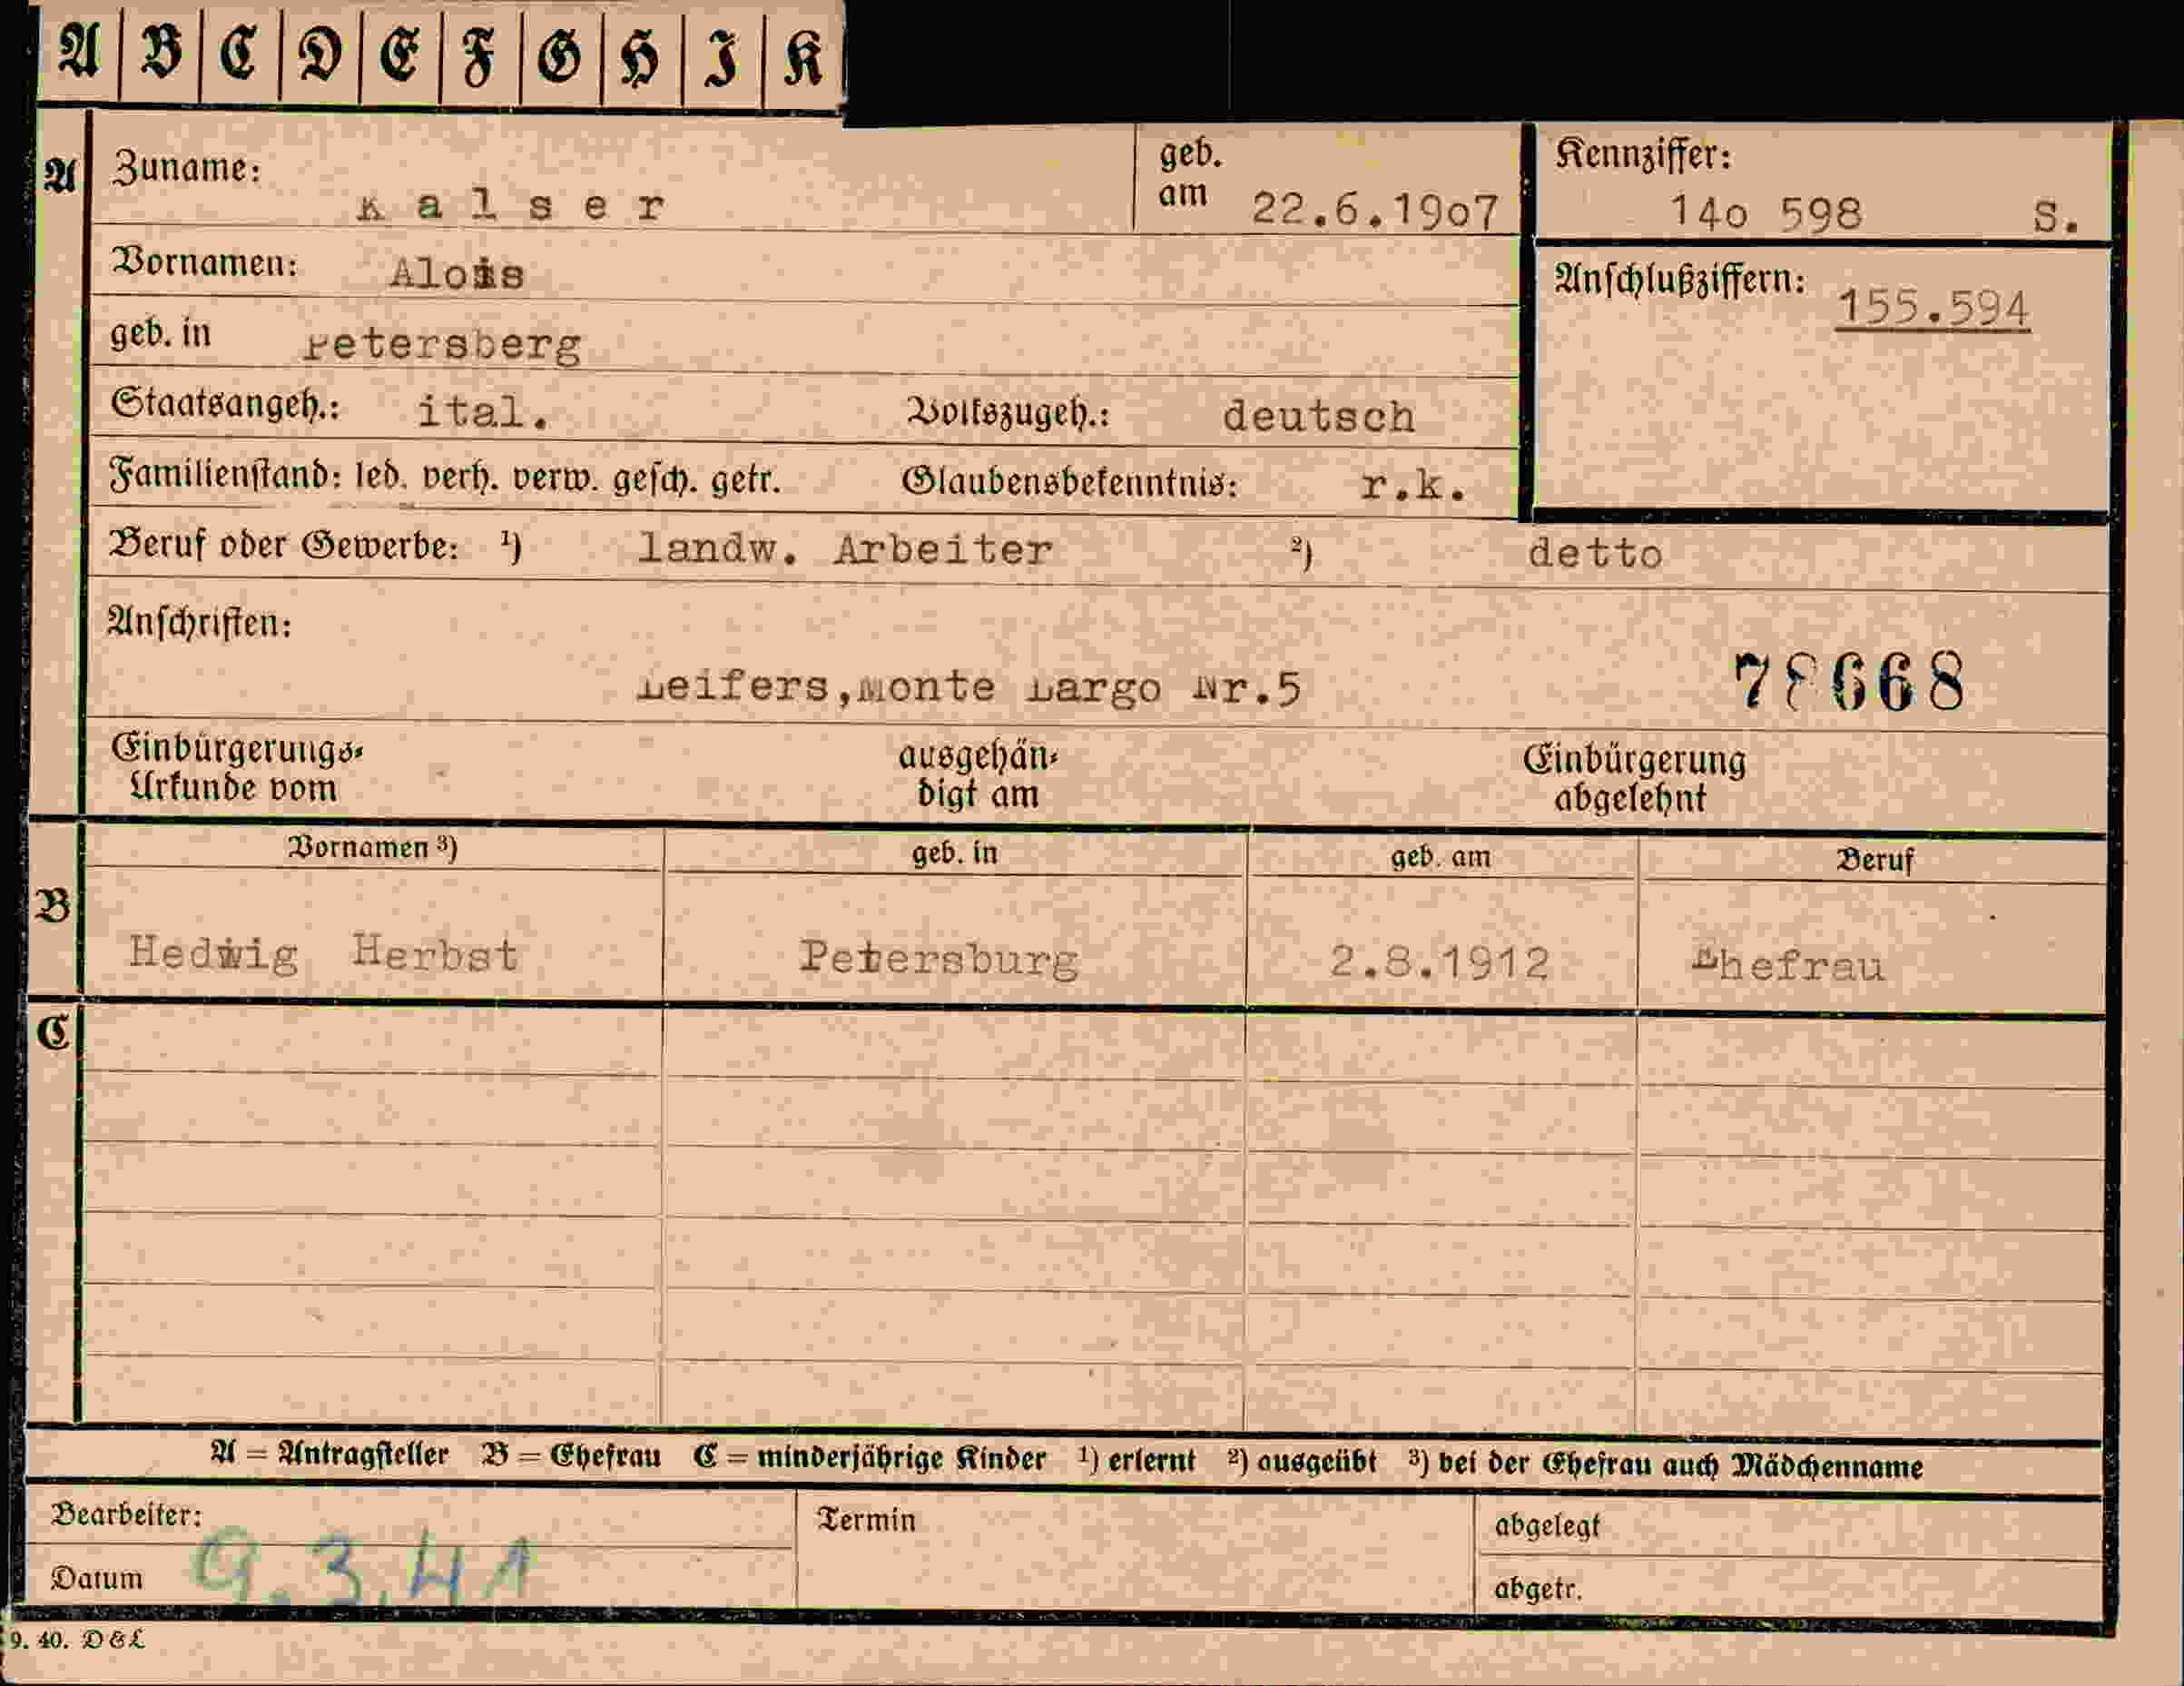 A B C D E F G H I K
A Zuname: Kalser geb. am 22.6.1907 Kennziffer: 14o 598 S.
Vornamen: Alois Anschlußziffern: 155.594
geb. in Petersberg
Staatsangeh.: ital. Volkszugeh.: deutsch
Familienstand: led. verh. verw. gesch. getr. Glaubensbekenntnis: r.k.
Beruf oder Gewerbe: 1) landw. Arbeiter 2) detto
Anschriften:
Leifers,Monte Largo Nr.5 78668
Einbürgerungs- ausgehän- Einbürgerung
Urkunde vom digt am abgelehnt
Vornamen 3) geb. in geb. am Beruf
B
Hedwig Herbst Petersburg 2.8.1912 Ehefrau
C
A = Antragsteller B = Ehefrau C = minderjährige Kinder 1) erlernt 2) ausgeübt 3) bei der Ehefrau auch Mädchenname
Bearbeiter: Termin abgelegt
Datum 9.3.41 abgetr.
9. 40. D&L